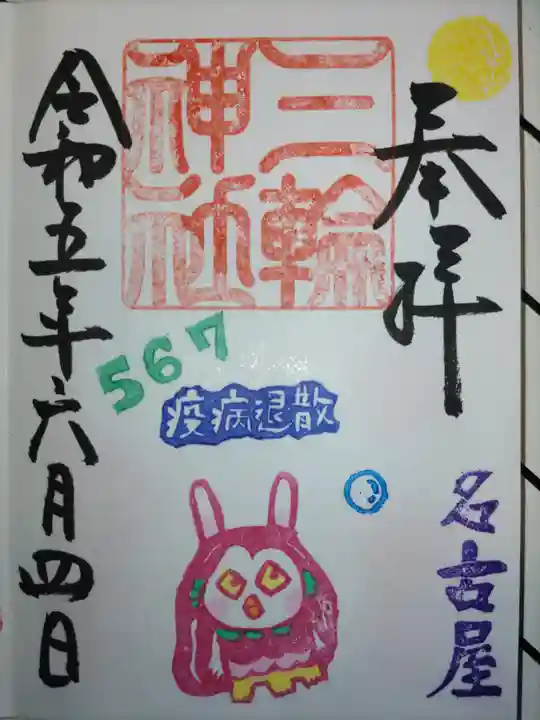 奉拝
名古屋
三輪
神社
567
疫病退散
令和五年六月四日